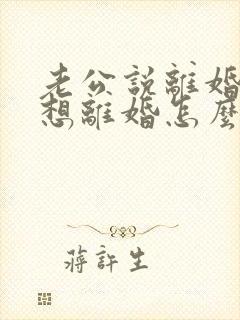 老公說離婚
想離婚怎麼
蔣許生